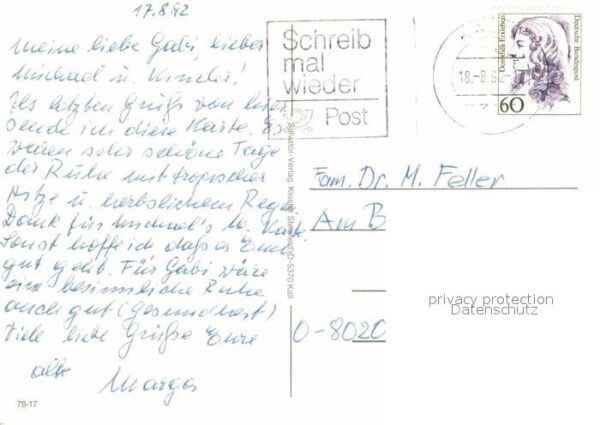 17.8.92
Meine liebe Gabi, lieber
Michael u. Kinder!
Als letzten Gruß von hier
sende ich diese Karte. Es
waren sehr schöne Tage
der Ruhe mit tropischer
Hitze u. herbstlichem Regen.
Dank für Michael's Karte.
Sonst hoffe ich daß es Euch
gut geht. Für Gabi wäre
eine besinnliche Ruhe
auch gut (Gesundheit)
Viele liebe Grüße Eure
alte
Margos
78-17
Senator-Verlag, Kloster Steinfeld D-5370 Kall
Schreib
mal
wieder
Post
18.-8.92
Dorothea Erxleben
Deutsche Bundespost
60
Fam. Dr. M. Feller
Am B
O-8020
privacy protection
Datenschutz